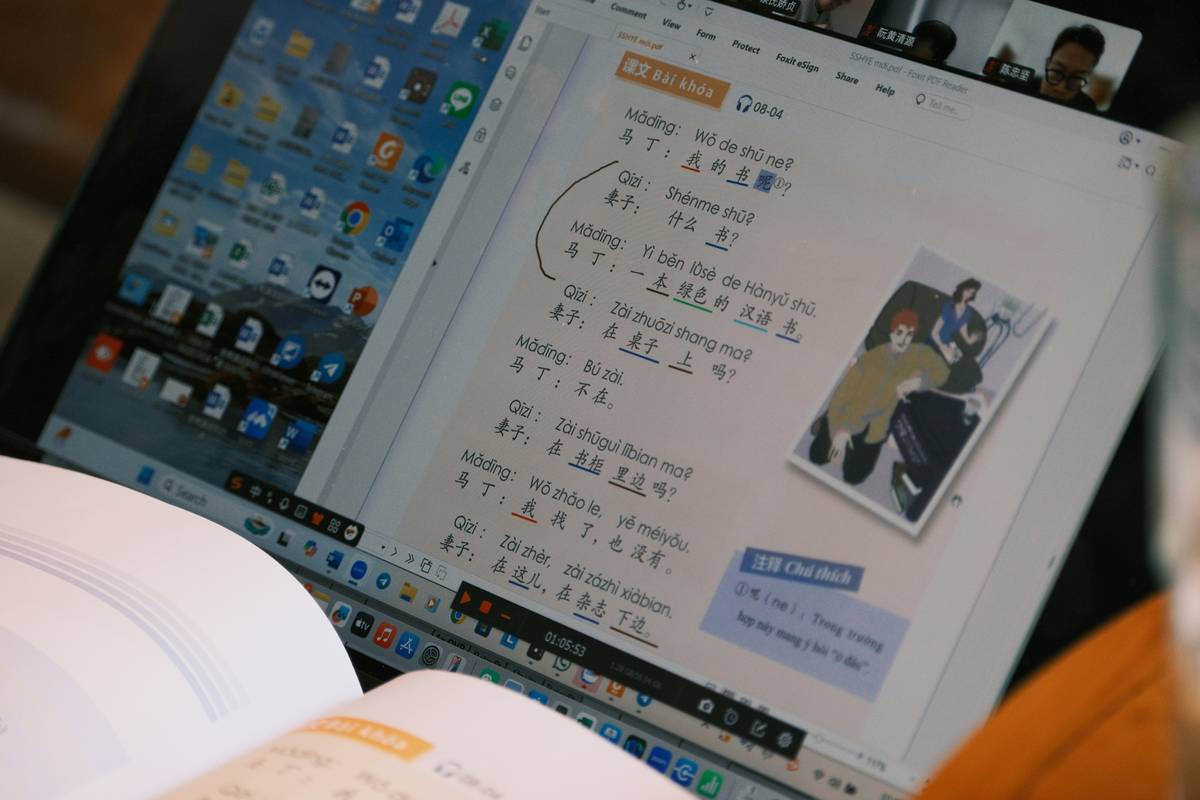 Comment View Form Protect Foxit eSign Share Help
SSHYE mới.pdf
SSHYE mới.pdf - Foxit PDF Reader
Tell me..
阮黄清源
陈忠坚
课文 Bài khóa
08-04
Mǎdīng: Wǒ de shū ne?
马 丁: 我 的 书 呢①?
Qīzi: Shénme shū?
妻子: 什么 书?
Mǎdīng: Yì běn lǜsè de Hànyǔ shū.
马 丁: 一 本 绿色 的 汉语 书。
Qīzi: Zài zhuōzi shang ma?
妻子: 在 桌子 上 吗?
Mǎdīng: Bú zài.
马 丁: 不在。
Qīzi: Zài shūguì lǐbian ma?
妻子: 在 书柜 里边 吗?
Mǎdīng: Wǒ zhǎo le, yě méiyǒu.
马 丁: 我 找 了, 也 没有。
Qīzi: Zài zhèr, zài zázhì xiàbian.
妻子: 在 这儿, 在 杂志 下边。
注释 Chú thích
①呢 (ne): Trong trường
hợp này mang ý hỏi "ở đâu".
Search
01:05:53
117%
Bài khóa
08-04